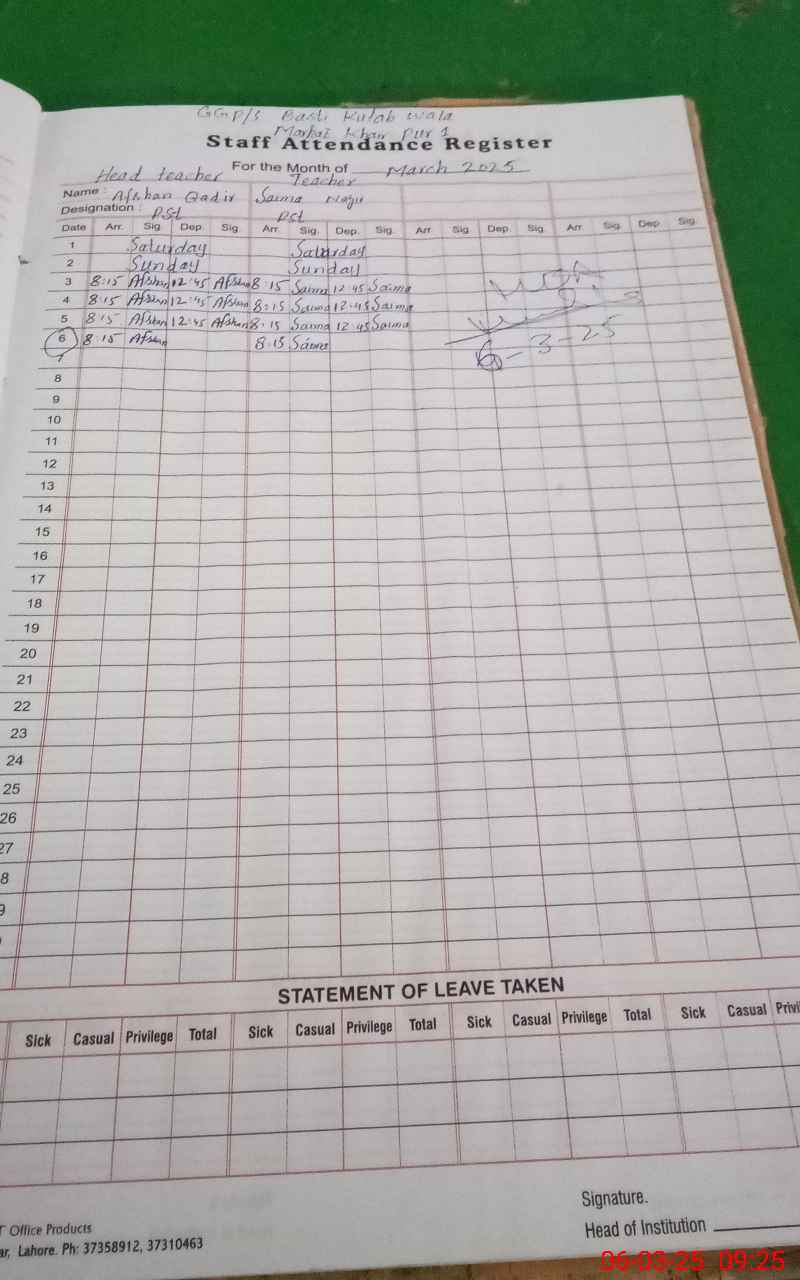 GGP/S Basti Kutab wala
Markaz Khair Pur 1
Staff Attendance Register
For the Month of March 2025
Head teacher Teacher
Name : Afshan Qadir Saima
Designation : PST PST
Date Arr. Sig. Dep. Sig. Arr. Sig. Dep. Sig. Arr Sig. Dep. Sig. Arr. Sig. Dep Sig.
1 Saturday Saturday
2 Sunday Sunday
3 8:15 Afshan 12:45 Afshan 8:15 Saima 12:45 Saima
4 8:15 Afshan 12:45 Afshan 8:15 Saima 12:45 Saima
5 8:15 Afshan 12:45 Afshan 8:15 Saima 12:45 Saima
6 8:15 Afshan 8:15 Saima
6-3-25
7
8
9
10
11
12
13
14
15
16
17
18
19
20
21
22
23
24
25
26
27
8
9
STATEMENT OF LEAVE TAKEN
Sick Casual Privilege Total Sick Casual Privilege Total Sick Casual Privilege Total Sick Casual Privi
Signature.
Head of Institution
T Office Products
ar, Lahore. Ph: 37358912, 37310463
06-03-25 09:25